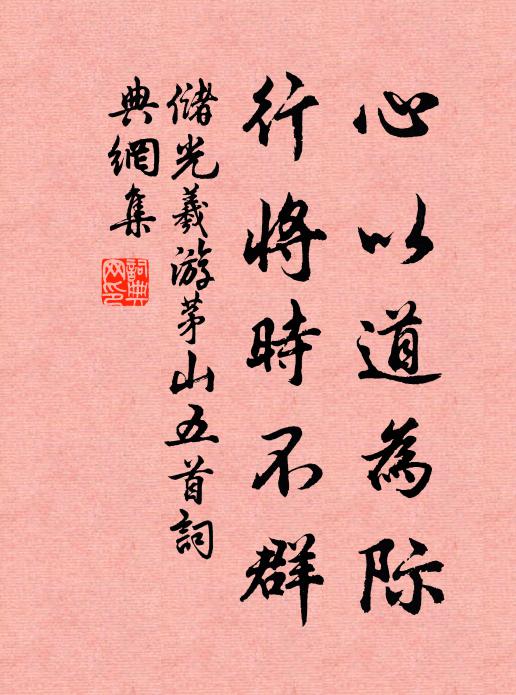 心以道為际
行将時不群
储光羲游茅山五首詞
典網集
詞典網印